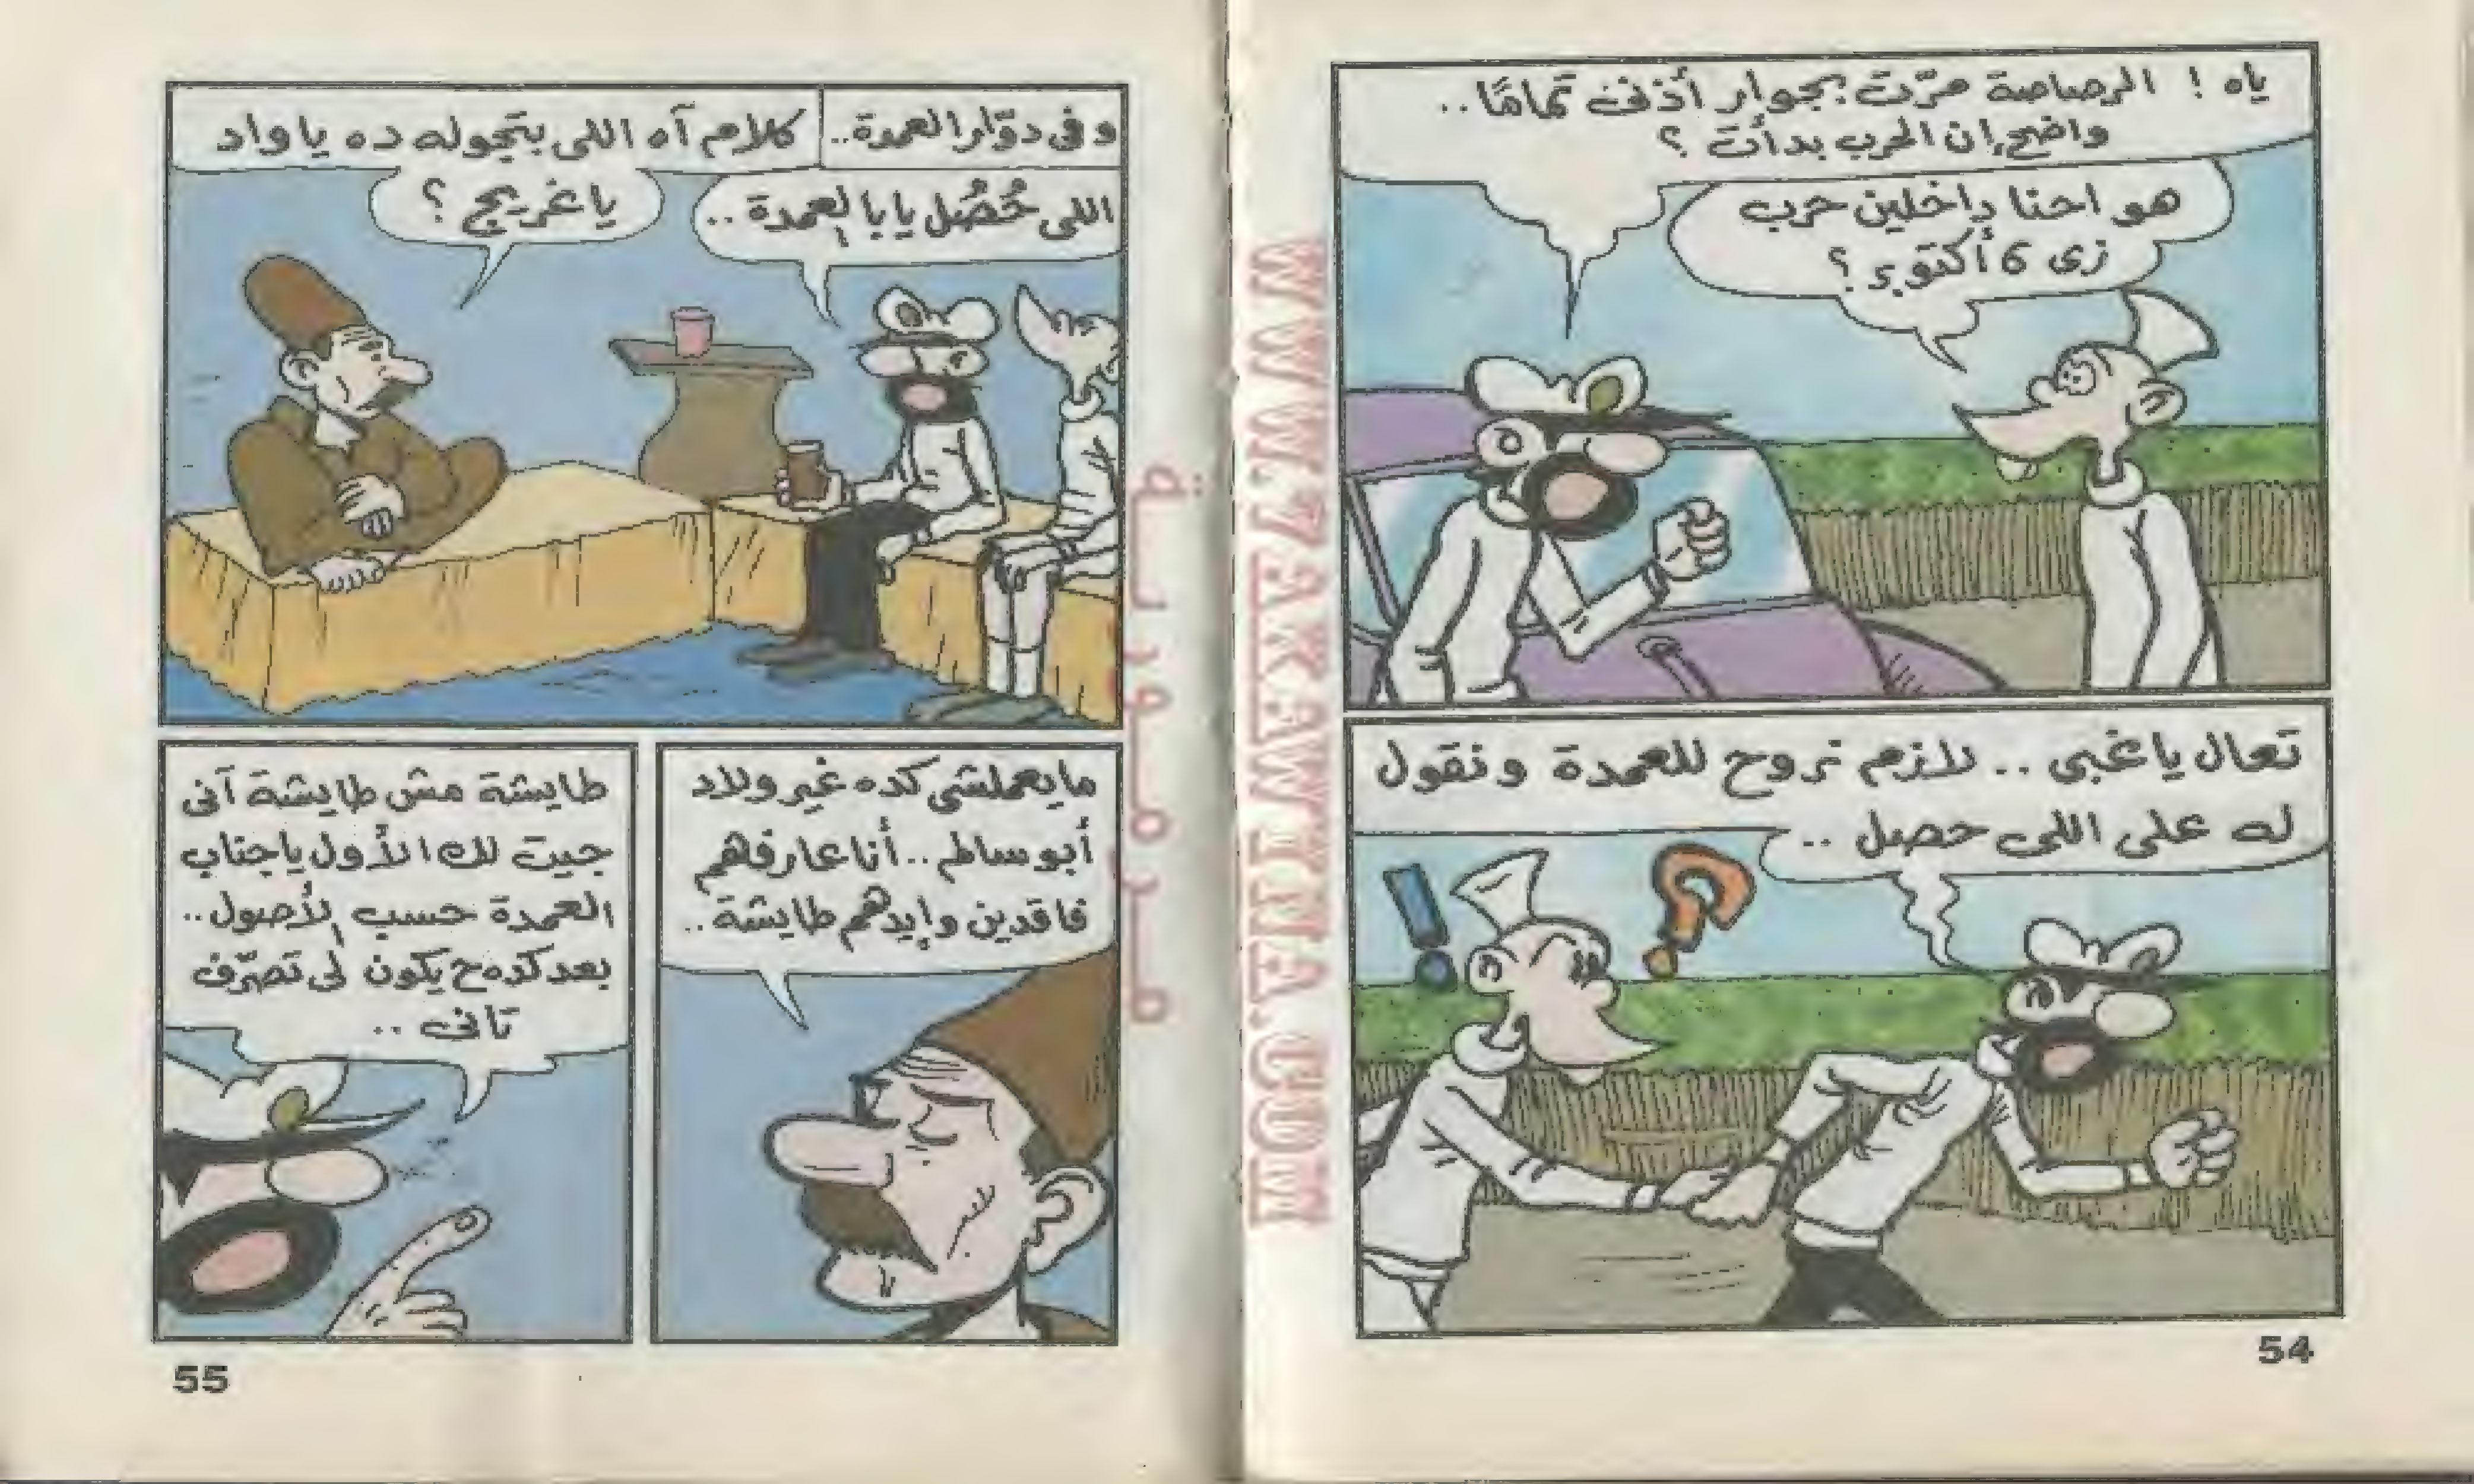 ياه ! الرصاصة مرّت بجوار أذنى تمامًا ..
واضح إن الحرب بدأت ؟
هو احنا داخلين حرب
زى 6 أكتوبر ؟
تعال يا غبى .. لازم نروح للعمدة ونقول
له على اللى حصل ..
54
وفى دوّار العمدة ..
اللى حُصُل يا با العمدة ..
كلام آه اللى بتجوله ده يا واد
يا غريج ؟
ما يعملشى كده غير ولاد
أبو سالم .. أنا عارفهم
فاقدين وإيدهم طايشة ..
طايشة مش طايشة آنى
جيت لك الأول يا جناب
العمدة حسب الأصول ..
بعد كده ح يكون لى تصرّف
تانى ..
55
WWW.ZAKAWINA.COM